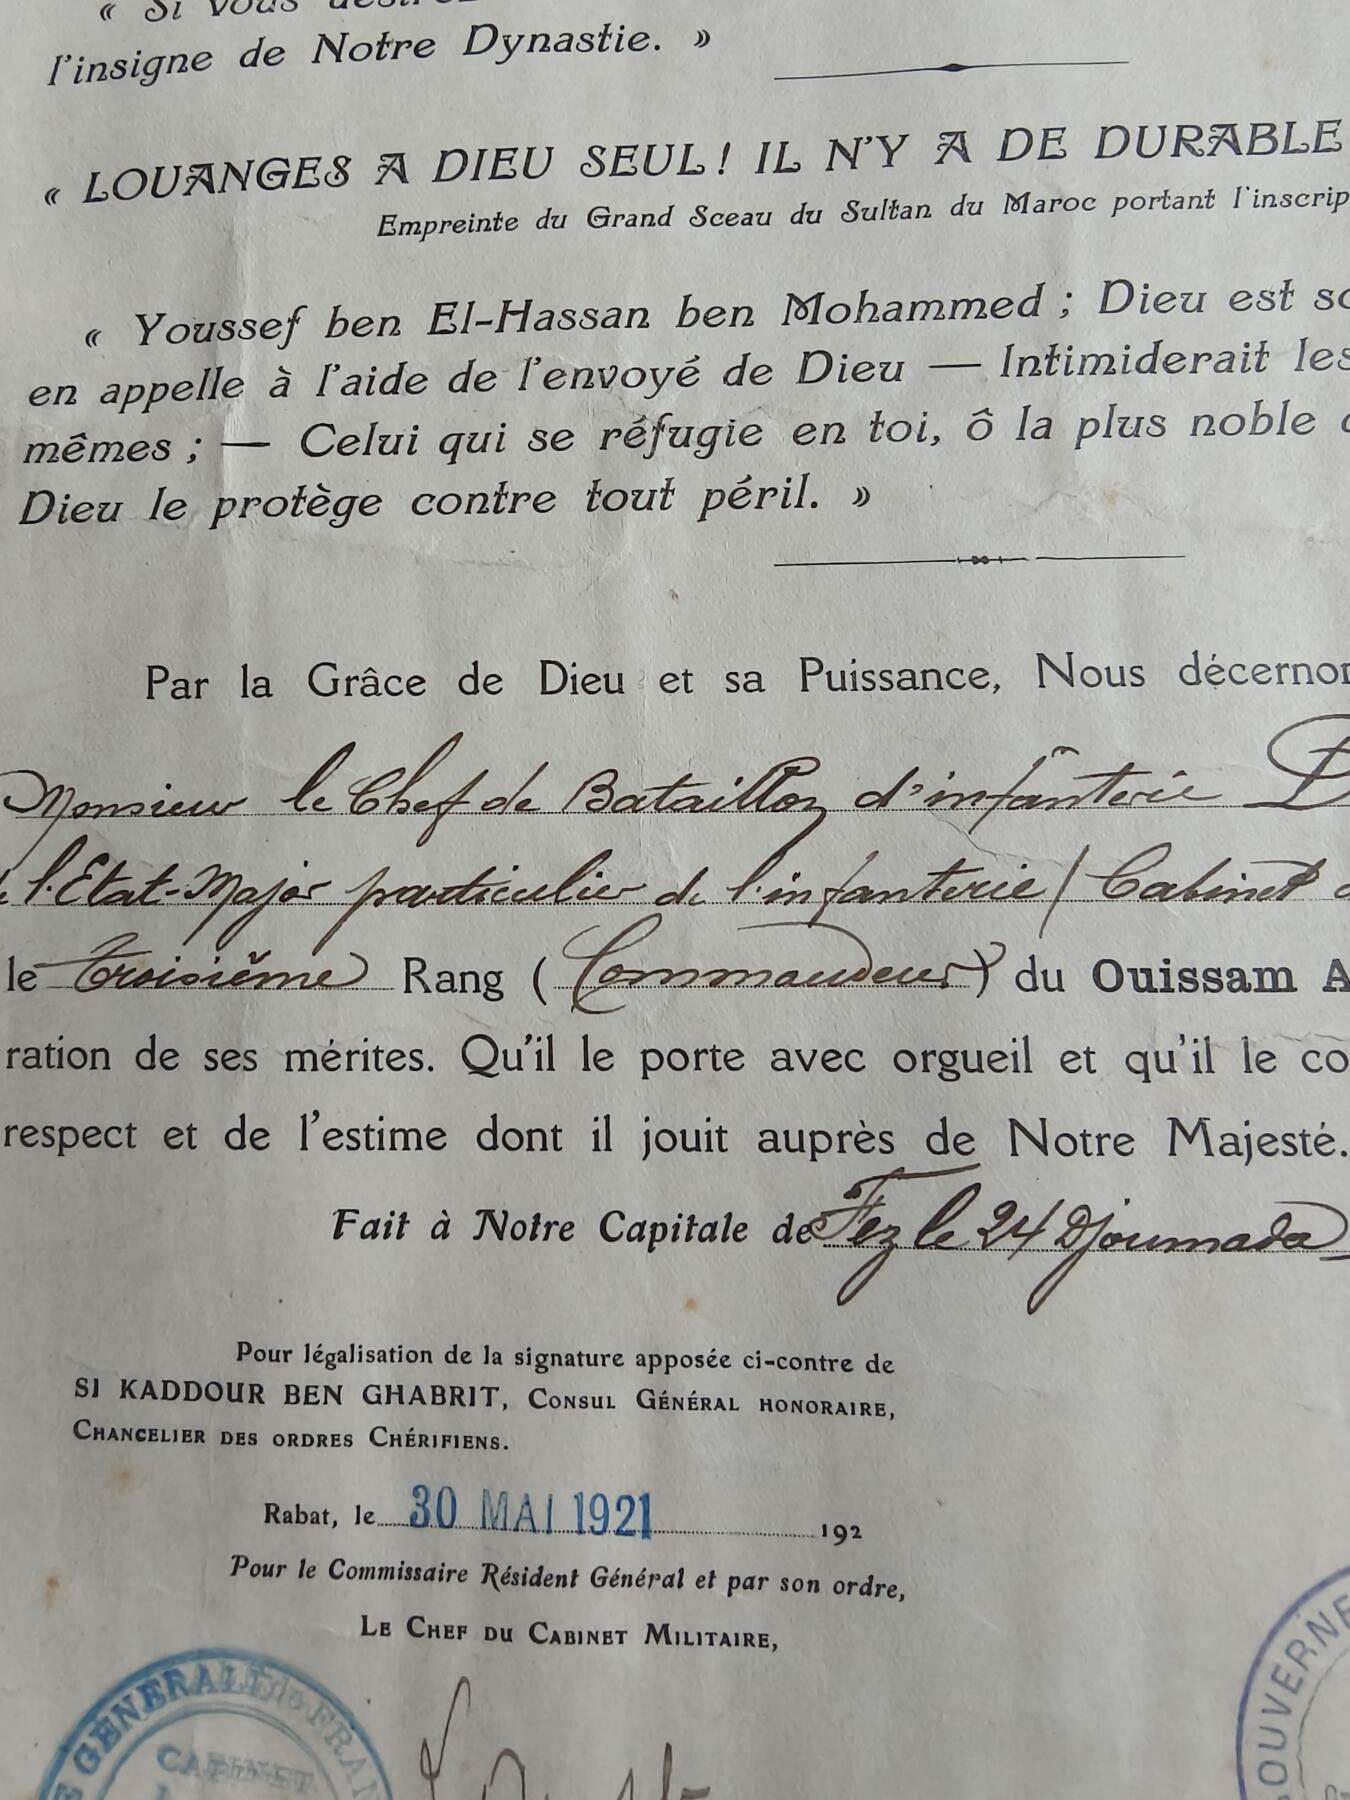 « Si vous
l'insigne de Notre Dynastie. »
« LOUANGES A DIEU SEUL ! IL N'Y A DE DURABLE
Empreinte du Grand Sceau du Sultan du Maroc portant l'inscrip
« Youssef ben El-Hassan ben Mohammed ; Dieu est so
en appelle à l'aide de l'envoyé de Dieu — Intimiderait les
mêmes ; — Celui qui se réfugie en toi, ô la plus noble
Dieu le protège contre tout péril. »
Par la Grâce de Dieu et sa Puissance, Nous décernon
Monsieur le Chef de Bataillon d'infanterie D
l'Etat-Major particulier de l'infanterie (Cabinet
le troisième Rang (Commandeur) du Ouissam A
ration de ses mérites. Qu'il le porte avec orgueil et qu'il le co
respect et de l'estime dont il jouit auprès de Notre Majesté.
Fait à Notre Capitale de Fez le 24 Djoumada
Pour légalisation de la signature apposée ci-contre de
SI KADDOUR BEN GHABRIT, CONSUL GÉNÉRAL HONORAIRE,
CHANCELIER DES ORDRES CHÉRIFIENS.
Rabat, le 30 MAI 1921 192
Pour le Commissaire Résident Général et par son ordre,
LE CHEF DU CABINET MILITAIRE,
GÉNÉRALE de FRAN
CABINET
GOUVERNE